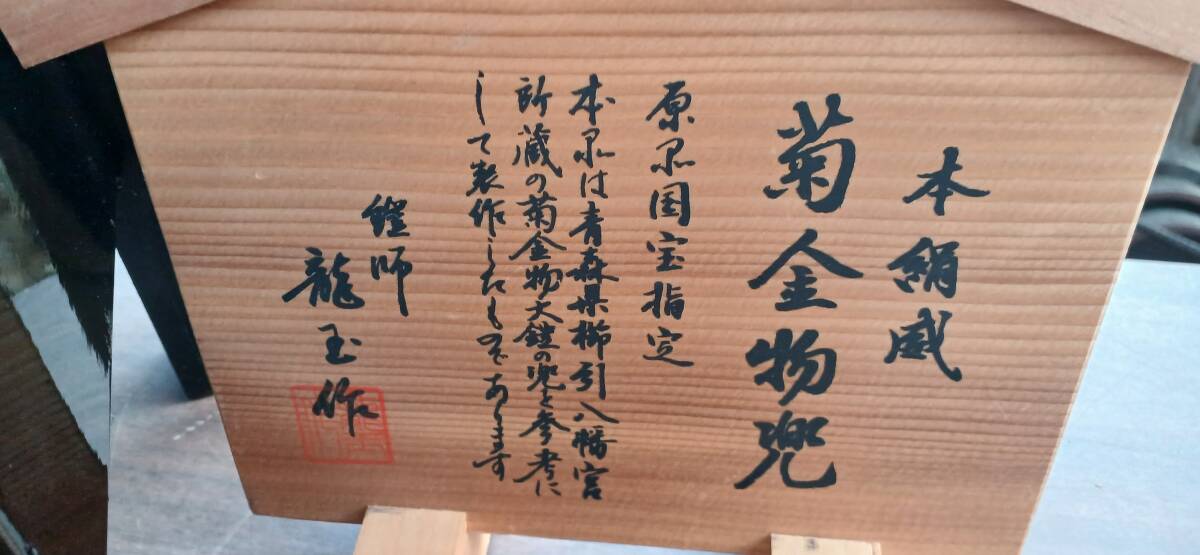 本絹威
菊金物兜
原品国宝指定
本品は青森県櫛引八幡宮
所蔵の菊金物大鎧の兜を参考に
して製作したものであります
鎧師
龍玉作